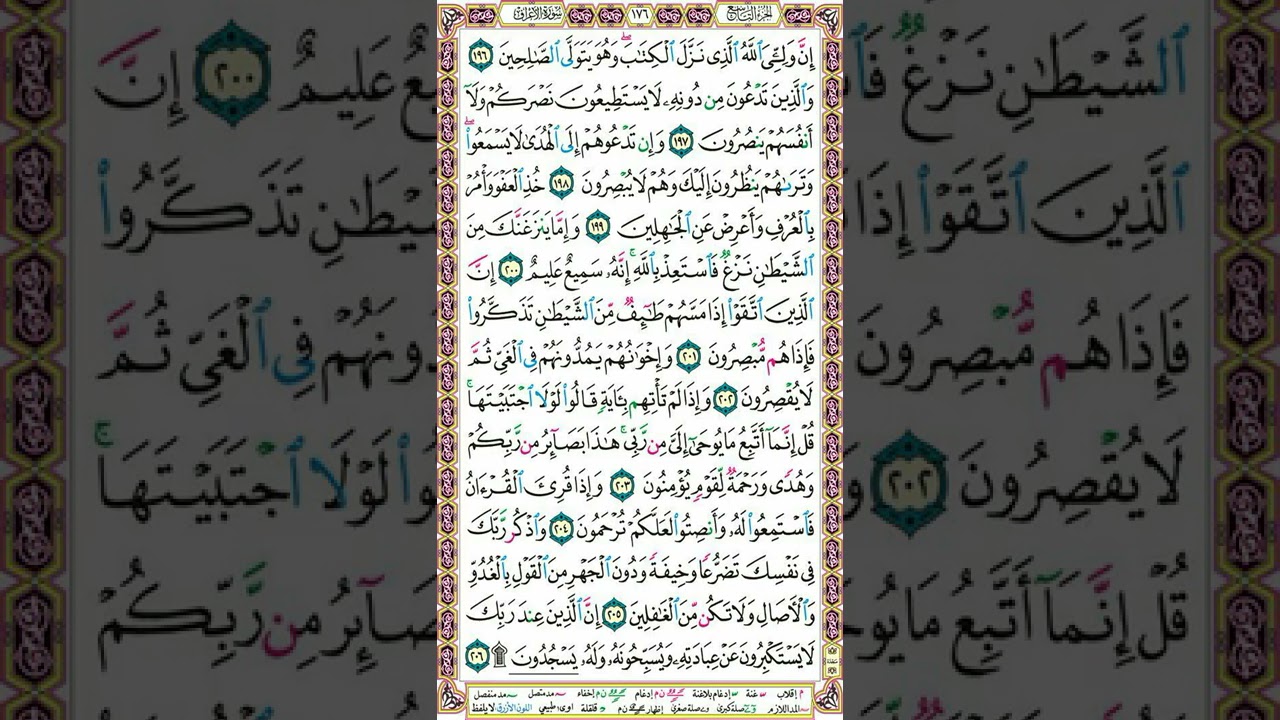 الجزء التاسع ١٧٦ سورة الأعراف
إِنَّ وَلِـِّۧىَ ٱللَّهُ ٱلَّذِى نَزَّلَ ٱلْكِتَٰبَ ۖ وَهُوَ يَتَوَلَّى ٱلصَّٰلِحِينَ ١٩٦
وَٱلَّذِينَ تَدْعُونَ مِن دُونِهِۦ لَا يَسْتَطِيعُونَ نَصْرَكُمْ وَلَآ
أَنفُسَهُمْ يَنصُرُونَ ١٩٧ وَإِن تَدْعُوهُمْ إِلَى ٱلْهُدَىٰ لَا يَسْمَعُوا۟ ۖ
وَتَرَىٰهُمْ يَنظُرُونَ إِلَيْكَ وَهُمْ لَا يُبْصِرُونَ ١٩٨ خُذِ ٱلْعَفْوَ وَأْمُرْ
بِٱلْعُرْفِ وَأَعْرِضْ عَنِ ٱلْجَٰهِلِينَ ١٩٩ وَإِمَّا يَنزَغَنَّكَ مِنَ
ٱلشَّيْطَٰنِ نَزْغٌ فَٱسْتَعِذْ بِٱللَّهِ ۚ إِنَّهُۥ سَمِيعٌ عَلِيمٌ ٢٠٠ إِنَّ
ٱلَّذِينَ ٱتَّقَوْا۟ إِذَا مَسَّهُمْ طَٰٓئِفٌ مِّنَ ٱلشَّيْطَٰنِ تَذَكَّرُوا۟
فَإِذَا هُم مُّبْصِرُونَ ٢٠١ وَإِخْوَٰنُهُمْ يَمُدُّونَهُمْ فِى ٱلْغَىِّ ثُمَّ
لَا يُقْصِرُونَ ٢٠٢ وَإِذَا لَمْ تَأْتِهِم بِـَٔايَةٍ قَالُوا۟ لَوْلَا ٱجْتَبَيْتَهَا ۚ
قُلْ إِنَّمَآ أَتَّبِعُ مَا يُوحَىٰٓ إِلَىَّ مِن رَّبِّى ۚ هَٰذَا بَصَآئِرُ مِن رَّبِّكُمْ
وَهُدًى وَرَحْمَةٌ لِّقَوْمٍ يُؤْمِنُونَ ٢٠٣ وَإِذَا قُرِئَ ٱلْقُرْءَانُ
فَٱسْتَمِعُوا۟ لَهُۥ وَأَنصِتُوا۟ لَعَلَّكُمْ تُرْحَمُونَ ٢٠٤ وَٱذْكُر رَّبَّكَ
فِى نَفْسِكَ تَضَرُّعًا وَخِيفَةً وَدُونَ ٱلْجَهْرِ مِنَ ٱلْقَوْلِ بِٱلْغُدُوِّ
وَٱلْءَاصَالِ وَلَا تَكُن مِّنَ ٱلْغَٰفِلِينَ ٢٠٥ إِنَّ ٱلَّذِينَ عِندَ رَبِّكَ
لَا يَسْتَكْبِرُونَ عَنْ عِبَادَتِهِۦ وَيُسَبِّحُونَهُۥ وَلَهُۥ يَسْجُدُونَ ۩ ٢٠٦
م إقلاب غنة إدغام بلاغنة ن م إدغام ن م إخفاء مد متصل مد منفصل
المد اللازم صلة كبرى صلة صغرى إظهار ن م قلقلة اوى: طبيعي اللون الأزرق لا يلفظ